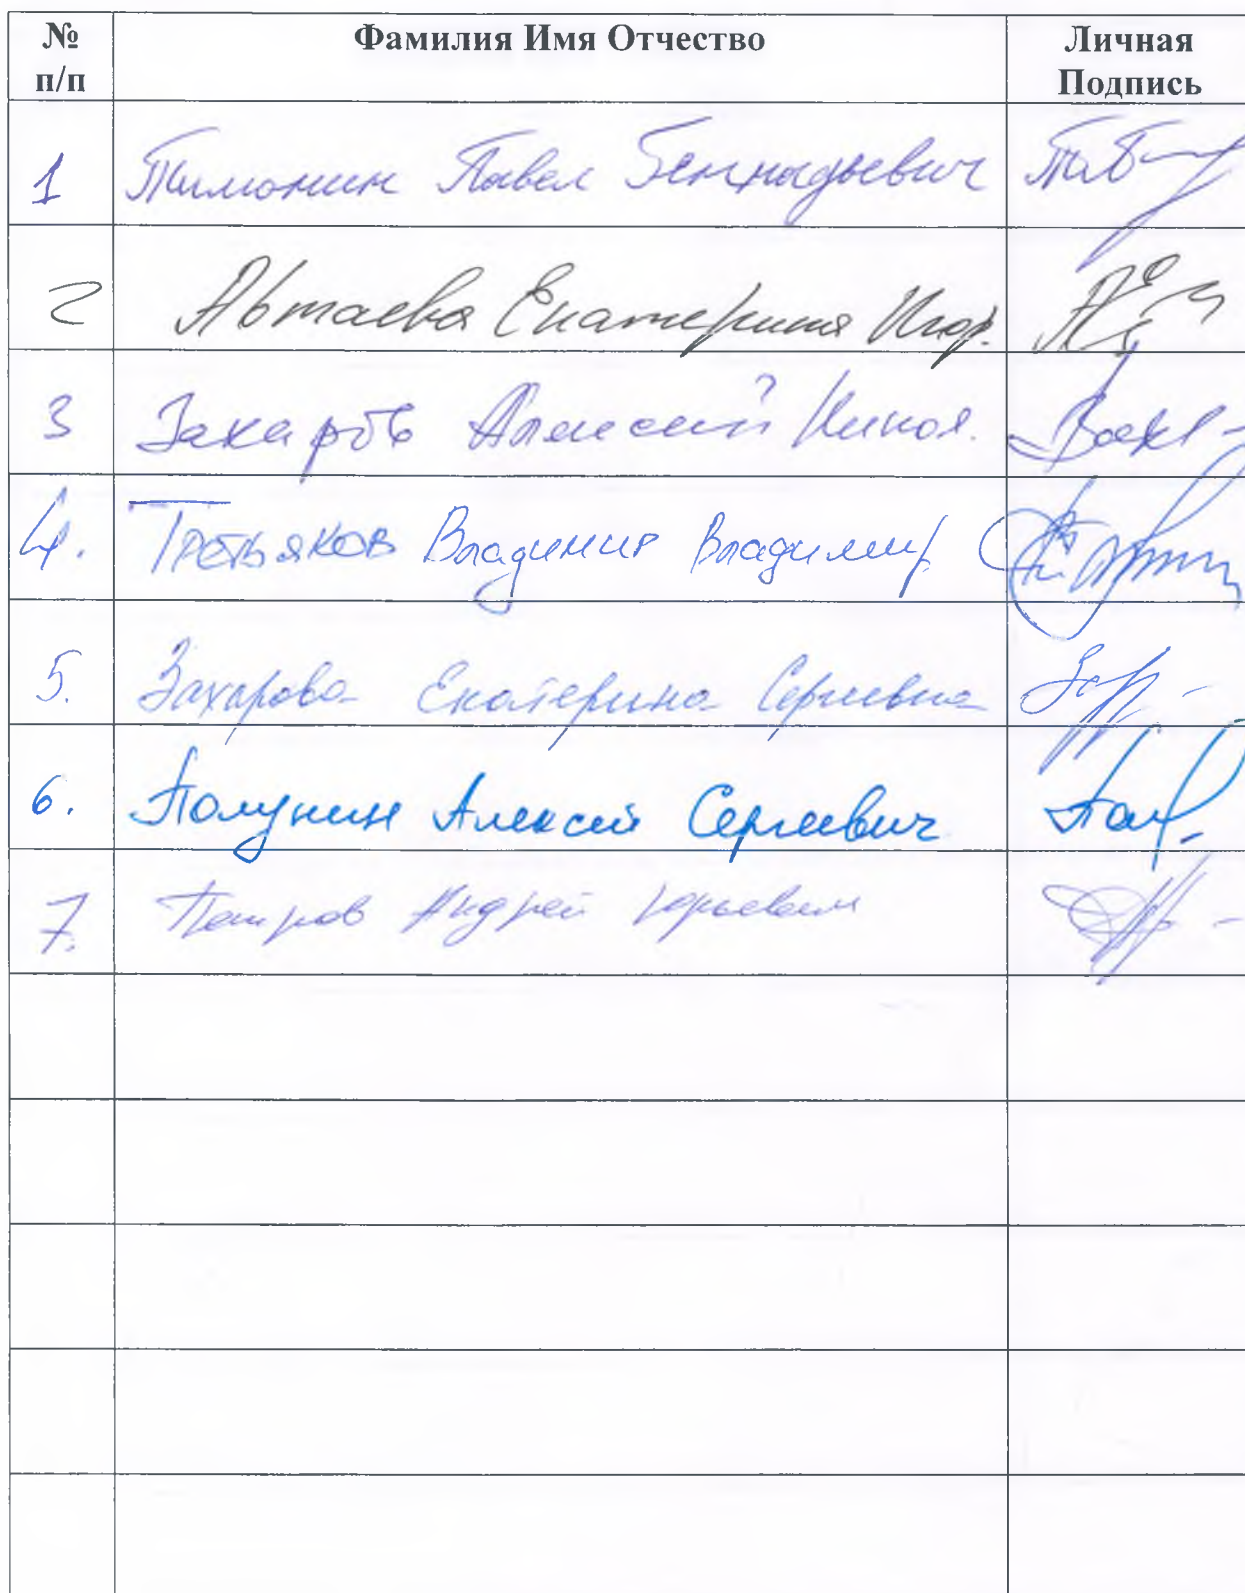 № Фамилия Имя Отчество Личная
п/п Подпись
1 Тимонин Павел Геннадьевич
2 Автаева Екатерина Игор.
3 Захаров Алексей Никол.
4. Третьяков Владимир Владимир
5. Захарова Екатерина Сергеевна
6. Полунин Алексей Сергеевич
7. Петров Андрей Юрьевич